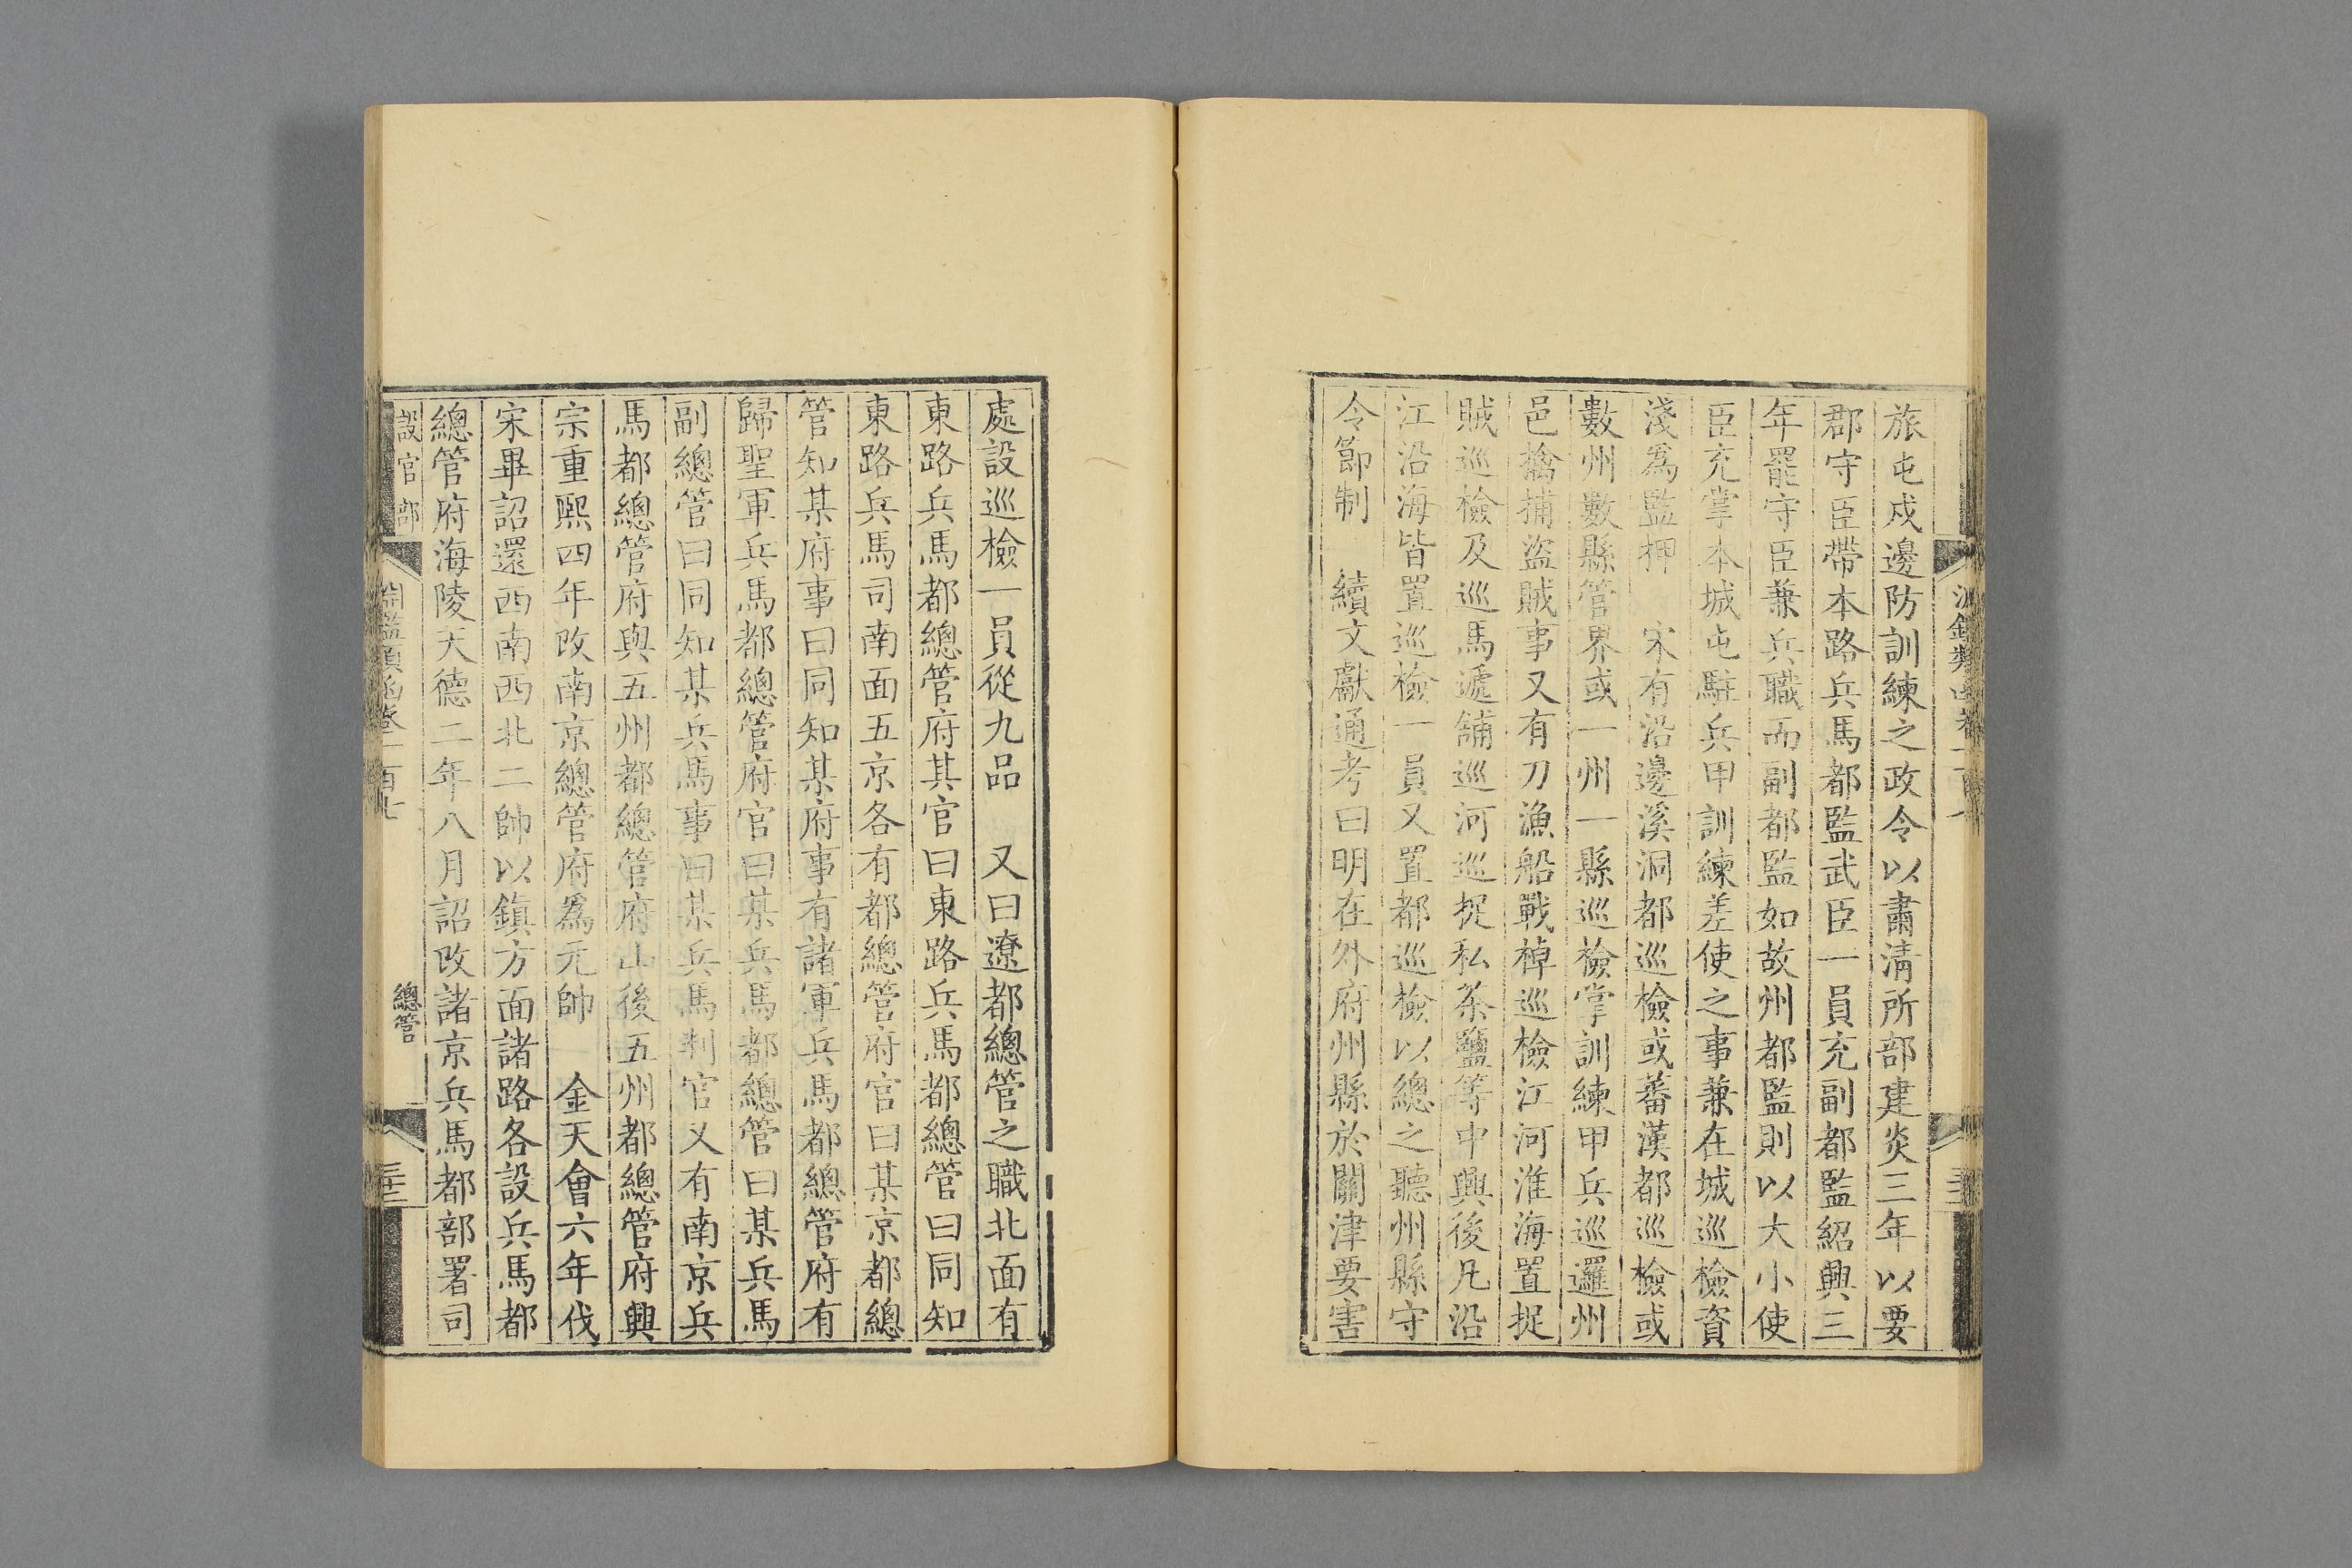 旅屯戍邊防訓練之政令以肅淸所部建炎三年以要
郡守臣帶本路兵馬都監武臣一員充副都監紹興三
年罷守臣兼兵職而副都監如故州都監則以大小使
臣充掌本城屯駐兵甲訓練差使之事兼在城巡檢資
淺爲監押　宋有沿邊溪洞都巡檢或蕃漢都巡檢或
數州數縣管界或一州一縣巡檢掌訓練甲兵巡邏州
邑擒捕盜賊事又有刀漁船戰棹巡檢江河淮海置捉
賊巡檢及巡馬遞舖巡河巡捉私茶鹽等中興後凡沿
江沿海皆置巡檢一員又置都巡檢以總之聽州縣守
令節制　續文獻通考曰明在外府州縣於關津要害
處設巡檢一員從九品　又曰遼都總管之職北面有
東路兵馬都總管府其官曰東路兵馬都總管曰同知
東路兵馬司南面五京各有都總管府官曰某京都總
管知某府事曰同知某府事有諸軍兵馬都總管府有
歸聖軍兵馬都總管府官曰某兵馬都總管曰某兵馬
副總管曰同知某兵馬事曰某兵馬判官又有南京兵
馬都總管府與五州都總管府山後五州都總管府興
宗重熙四年改南京總管府爲元帥　金天會六年伐
宋畢詔還西南西北二帥以鎭方面諸路各設兵馬都
總管府海陵天德二年八月詔改諸京兵馬都部署司
設官部　淵鑑類函卷一百七　總管　三十二